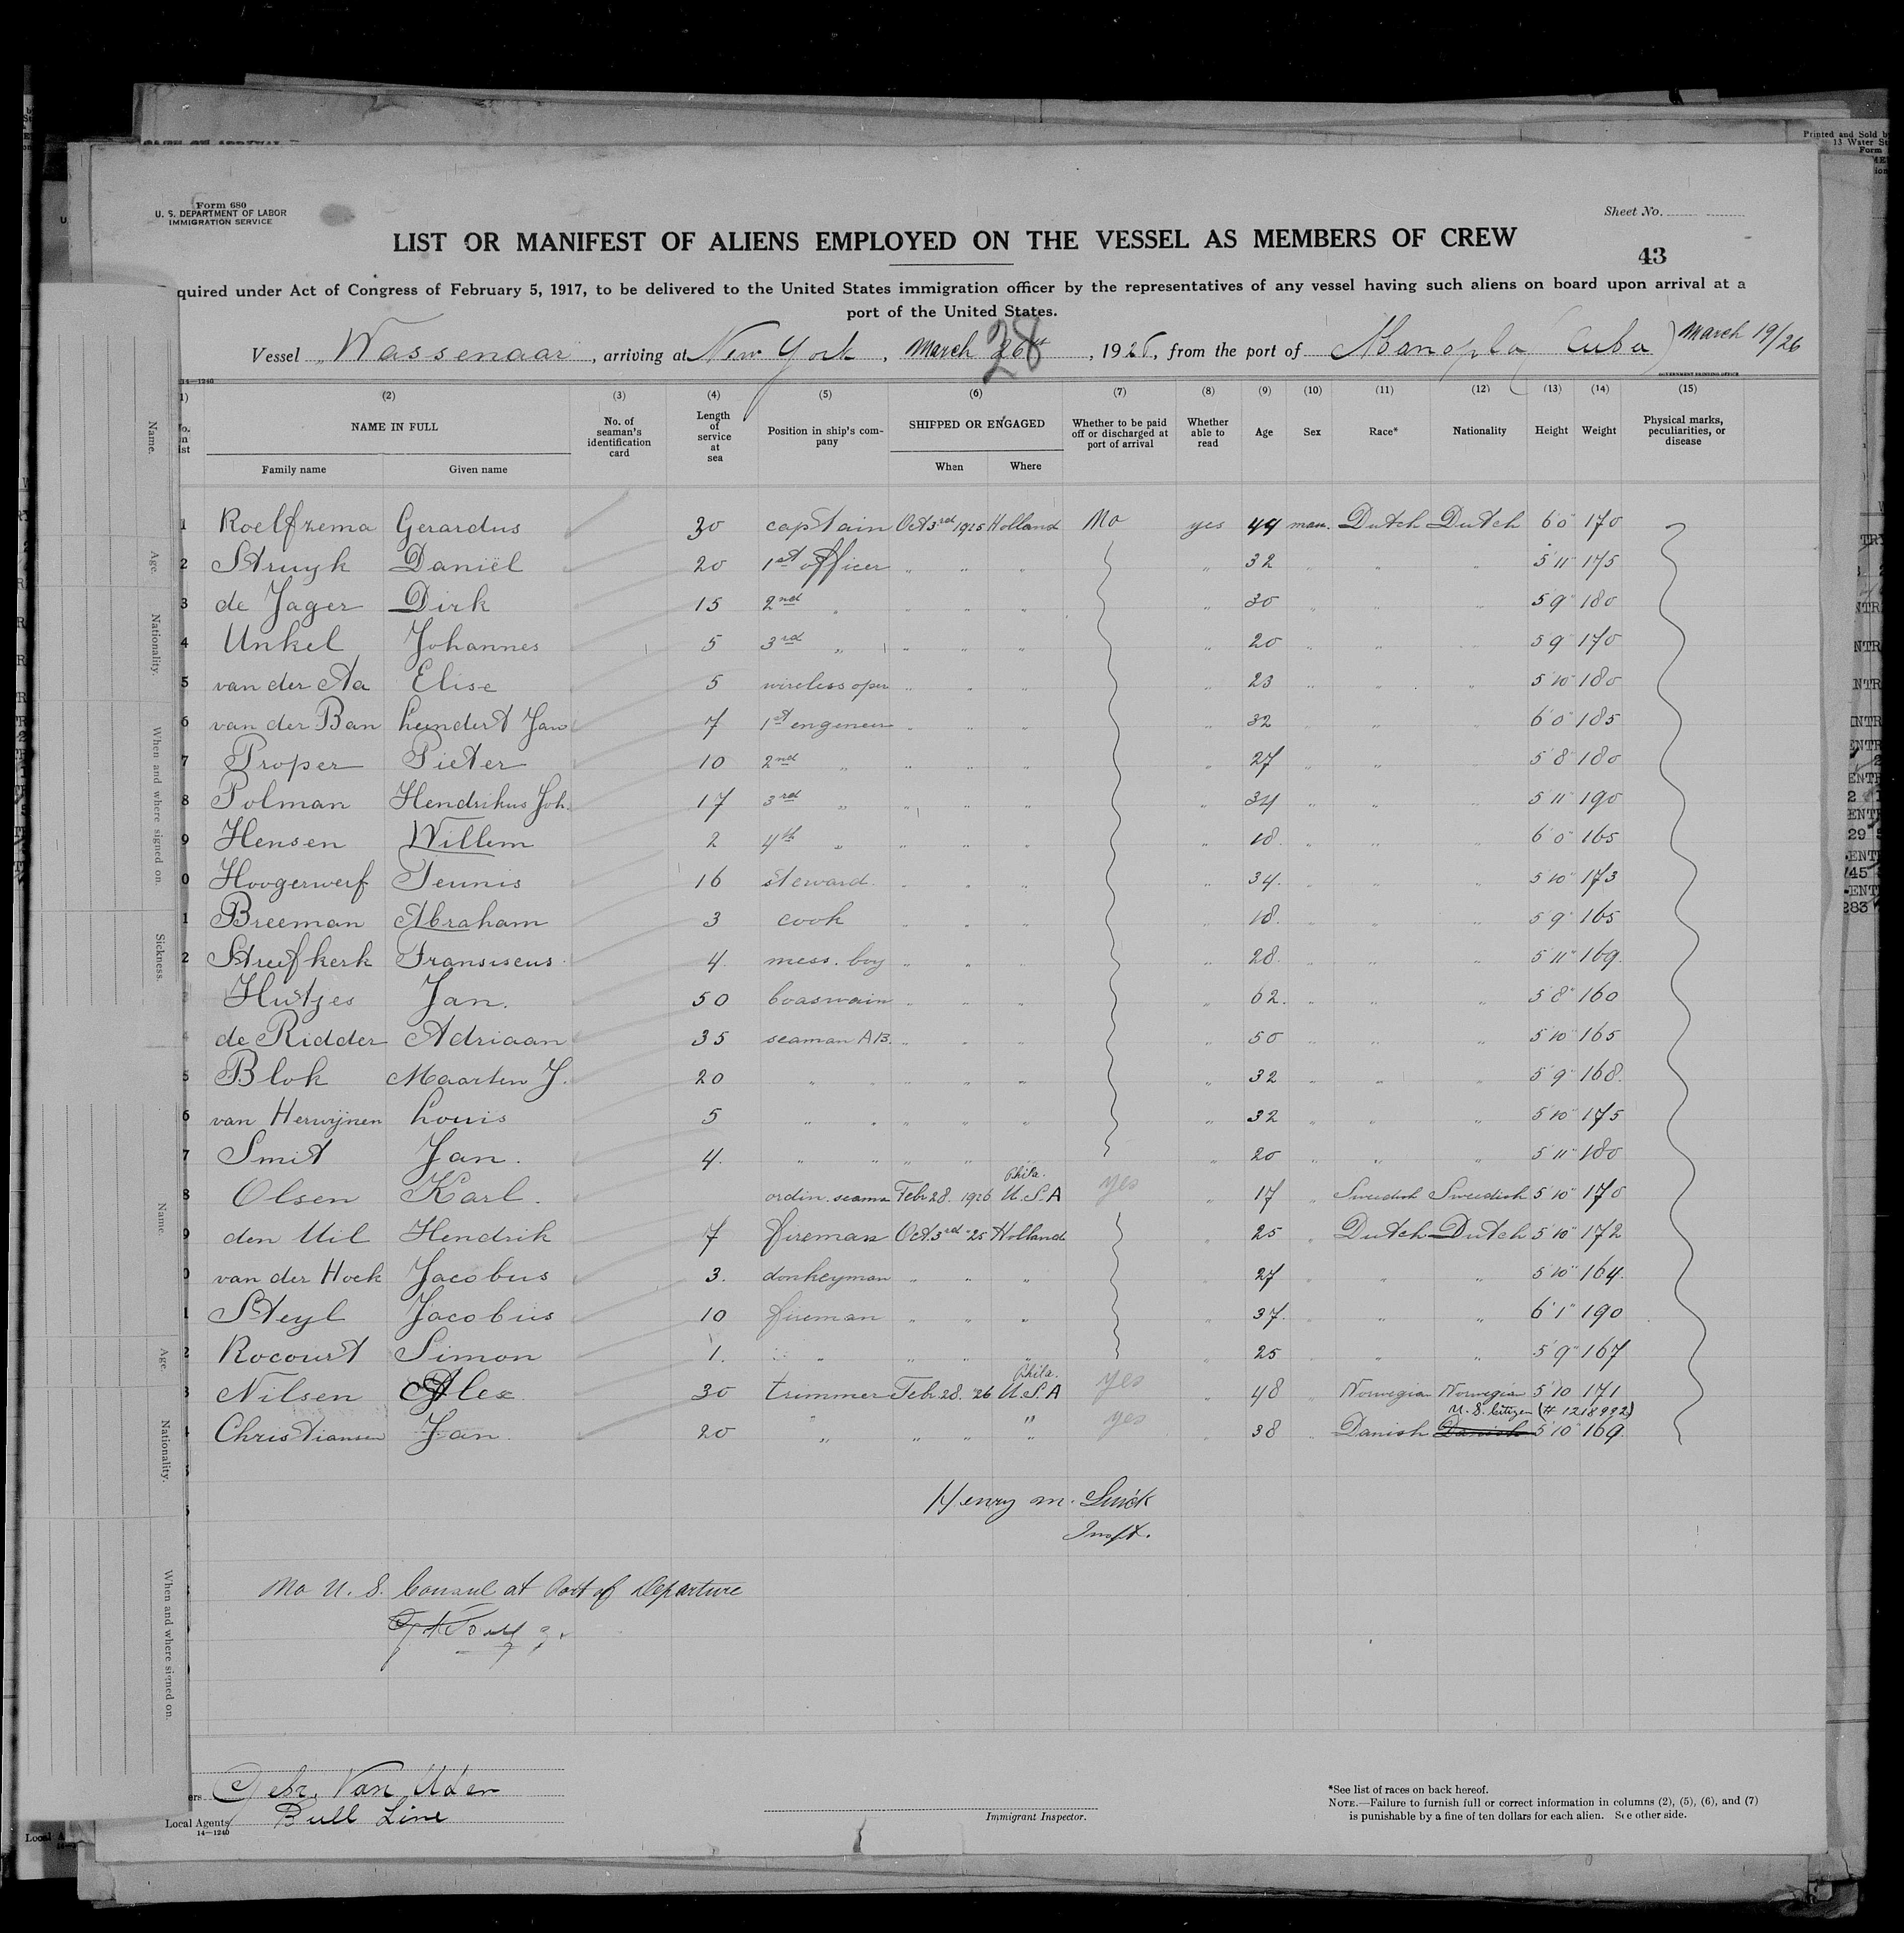 Form 680
U. S. DEPARTMENT OF LABOR
IMMIGRATION SERVICE
Sheet No.
LIST OR MANIFEST OF ALIENS EMPLOYED ON THE VESSEL AS MEMBERS OF CREW
43
quired under Act of Congress of February 5, 1917, to be delivered to the United States immigration officer by the representatives of any vessel having such aliens on board upon arrival at a
port of the United States.
Vessel Wassenaar, arriving at New York, March 28, 1926, from the port of Manopla (Cuba) March 19/26
14—1240 GOVERNMENT PRINTING OFFICE
(2) (3) (4) (5) (6) (7) (8) (9) (10) (11) (12) (13) (14) (15)
NAME IN FULL No. of seaman's identification card Length of service at sea Position in ship's company SHIPPED OR ENGAGED Whether to be paid off or discharged at port of arrival Whether able to read Age Sex Race* Nationality Height Weight Physical marks, peculiarities, or disease
Family name Given name When Where
1 Roelfzema Gerardus 30 captain Oct 3rd 1925 Holland No yes 49 man. Dutch Dutch 6 0 170
2 Struyk Daniël 20 1st officer " " " " 32 " " " 5 11 175
3 de Jager Dirk 15 2nd " " " " " 30 " " " 5 9 180
4 Unkel Johannes 5 3rd " " " " " 20 " " " 5 9 170
5 van der Aa Elise 5 wireless oper " " " " 23 " " " 5 10 180
6 van der Ban Leendert Jan 7 1st engeneer " " " " 32 " " " 6 0 185
7 Proper Pieter 10 2nd " " " " " 27 " " " 5 8 180
8 Polman Hendrikus Joh. 17 3rd " " " " " 34 " " " 5 11 190
9 Hensen Willem 2 4th " " " " " 18 " " " 6 0 165
0 Hoogerwerf Teunis 16 steward " " " " 34 " " " 5 10 173
1 Breeman Abraham 3 cook " " " " 18 " " " 5 9 165
2 Streefkerk Fransiscus 4 mess. boy " " " " 28 " " " 5 11 169
Hutzes Jan. 50 boaswain " " " " 62 " " " 5 8 160
de Ridder Adriaan 35 seaman AB. " " " " 50 " " " 5 10 165
5 Blok Maarten J. 20 " " " " " " 32 " " " 5 9 168
6 van Herwijnen Louis 5 " " " " " " 32 " " " 5 10 175
7 Smit Jan. 4. " " " " " " 20 " " " 5 11 180
8 Olsen Karl. ordin. seama Febr 28. 1926 Phila. U.S.A yes " 17 " Swedish Swedish 5 10 170
9 den Uil Hendrik 7 fireman Oct. 3rd "25 Holland " 25 " Dutch Dutch 5 10 172
0 van der Hoek Jacobus 3. donkeyman " " " " 27 " " " 5 10 164
1 Steyl Jacobus 10 fireman " " " " 37. " " " 6 1 190
2 Rocourt Simon 1. " " " " " 25 " " " 5 9 167
3 Nilsen Alex 30 trimmer Febr 28. '26 Phila. U.S.A yes " 48 " Norwegian Norwegian 5 10 171
U. S. Citizen (# 1218992)
Christiansen Jan 20 " " " " yes " 38 " Danish Danish 5 10 169
Henry M.
Inspt.
No U. S. Consul at Port of Departure
ers Gebr. Van Uden
Local Agents Bull Line
14—1240
Immigrant Inspector.
*See list of races on back hereof.
NOTE.—Failure to furnish full or correct information in columns (2), (5), (6), and (7)
is punishable by a fine of ten dollars for each alien. See other side.
Name.
Age.
Nationality.
When and where signed on.
Sickness.
Name.
Age.
Nationality.
When and where signed on.
Printed and Sold b
13 Water St
Form